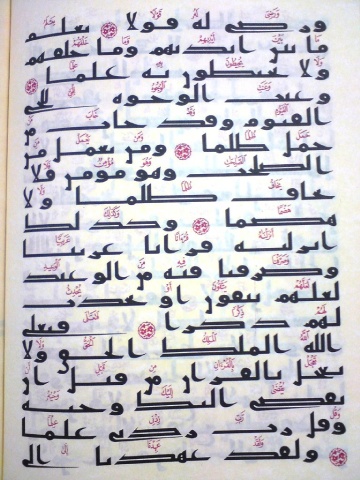 ورضي له قولا يعلم
ما بين ايديهم وما خلفهم
ولا يحيطون به علما
وعنت الوجوه للحي
القيوم وقد خاب من
حمل ظلما ومن يعمل من
الصلحت وهو مومن فلا
يخاف ظلما ولا
هضما وكذلك
انزلنه قرانا عربيا
وصرفنا فيه من الوعيد
لعلهم يتقون او يحدث
لهم ذكرا فتعلى
الله الملك الحق ولا
تعجل بالقران من قبل ان
يقضى اليك وحيه
وقل رب زدني علما
ولقد عهدنا الى